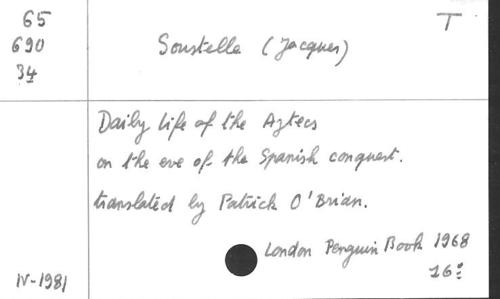 65
690
34
T
Soustelle (Jacques)
Daily life of the Aztecs
on the eve of the Spanish conquest.
translated by Patrick O'Brian.
London Penguin Book 1968
16º
IV-1981